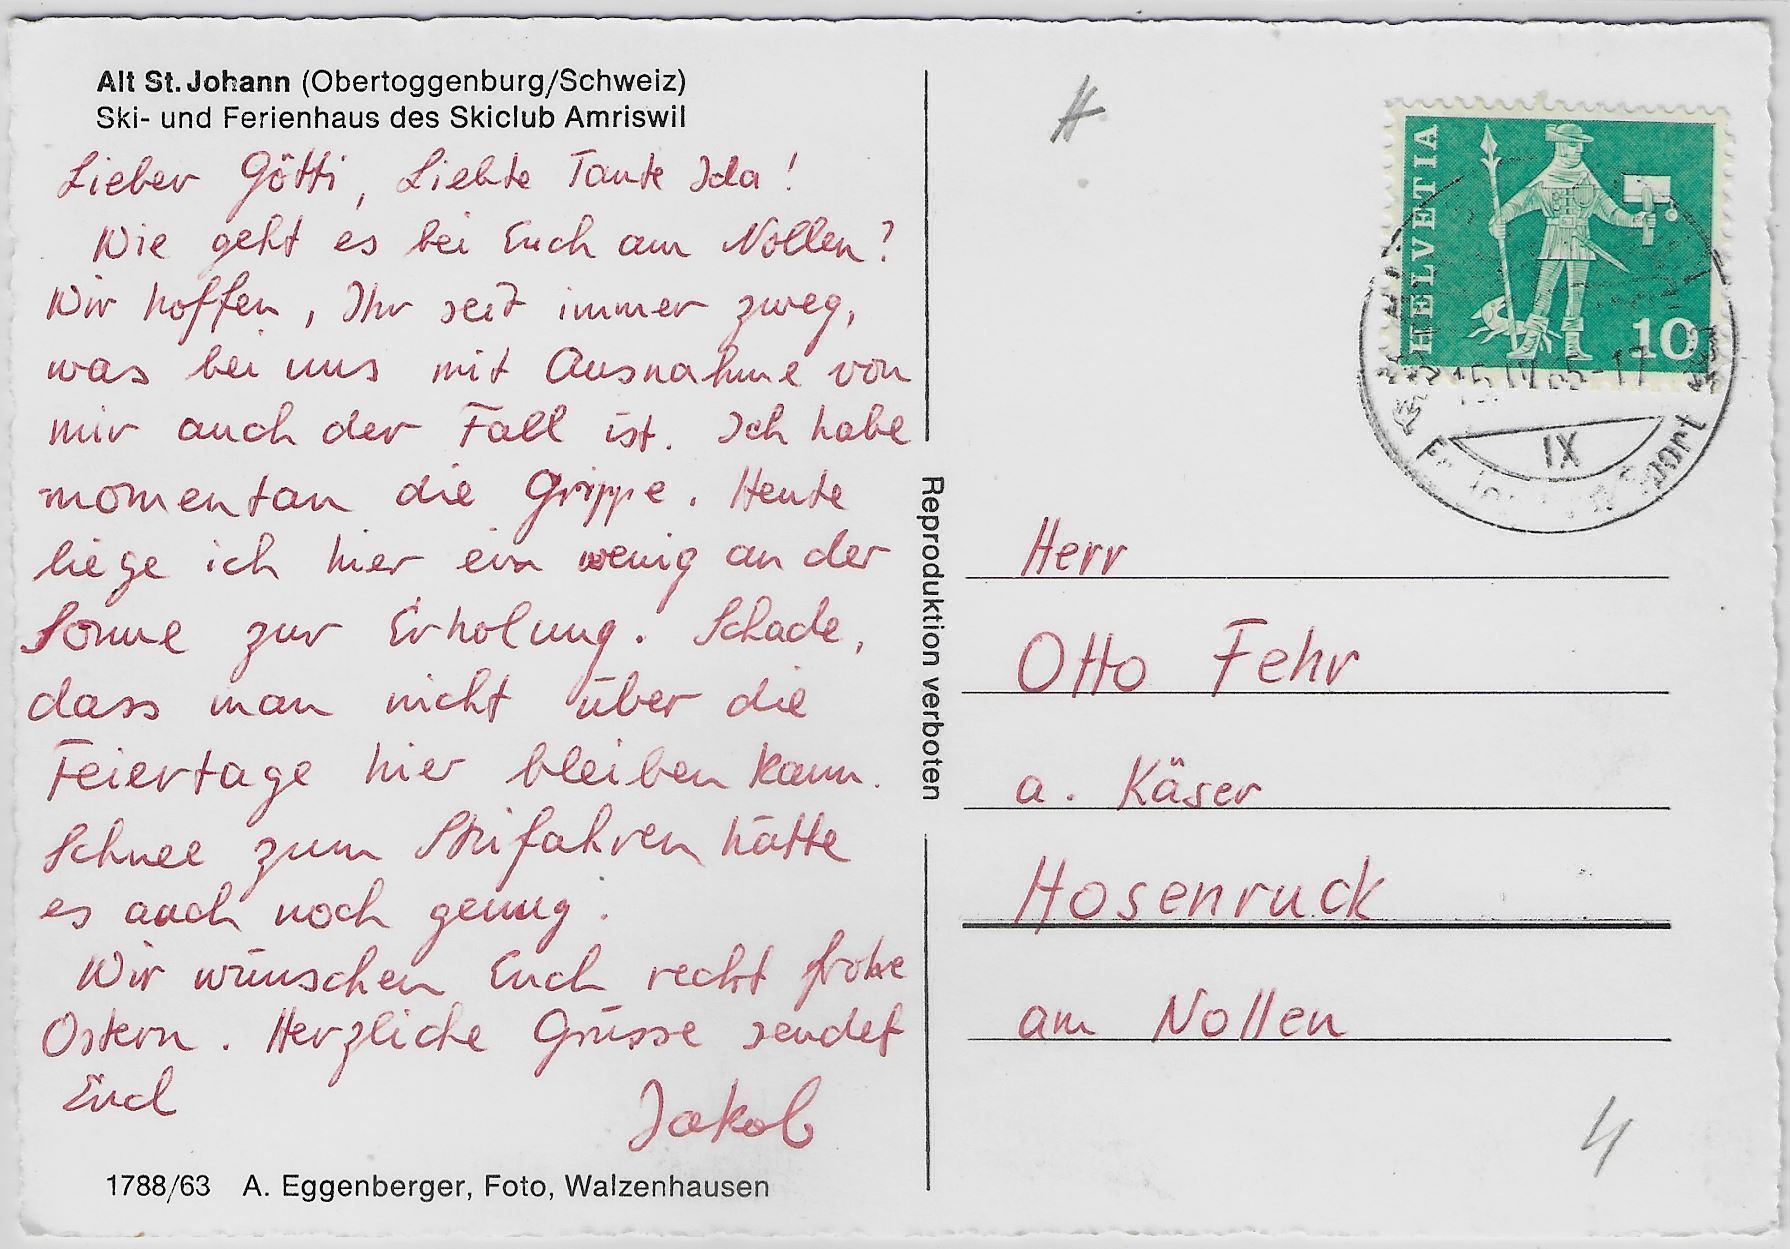 Alt St. Johann (Obertoggenburg/Schweiz)
Ski- und Ferienhaus des Skiclub Amriswil
Lieber Götti, Liebte Tante Ida!
Wie geht es bei Euch am Nollen?
Wir hoffen, Ihr seit immer zweg,
was bei uns mit Ausnahme von
mir auch der Fall ist. Ich habe
momentan die Grippe. Heute
liege ich hier ein wenig an der
Sonne zur Erholung. Schade,
dass man nicht über die
Feiertage hier bleiben kann.
Schnee zum Skifahren hätte
es auch noch genug.
Wir wünschen Euch recht frohe
Ostern. Herzliche Grüsse sendet
Euch
Jakob
1788/63 A. Eggenberger, Foto, Walzenhausen
Reproduktion verboten
HELVETIA
10
IX
Herr
Otto Fehr
a. Käser
Hosenruck
am Nollen
4